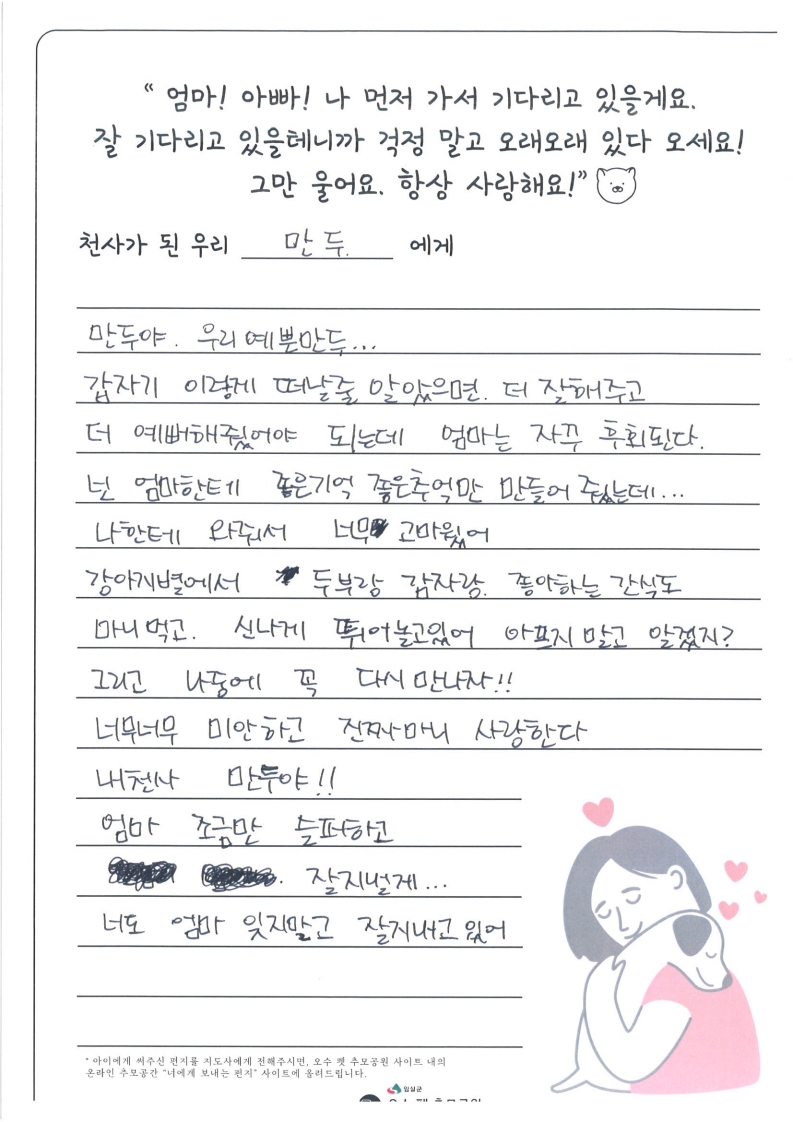 “ 엄마! 아빠! 나 먼저 가서 기다리고 있을게요.
잘 기다리고 있을테니까 걱정 말고 오래오래 있다 오세요!
그만 울어요. 항상 사랑해요!”
천사가 된 우리 만두. 에게
만두야. 우리 예쁜만두...
갑자기 이렇게 떠날줄 알았으면. 더 잘해주고
더 예뻐해줬어야 되는데 엄마는 자꾸 후회된다.
넌 엄마한테 좋은기억 좋은추억만 만들어 줬는데...
나한테 와줘서 너무 고마웠어
강아지별에서 두부랑 감자랑. 좋아하는 간식도
마니먹고. 신나게 뛰어놀고있어 아프지 말고 알겠지?
그리고 나중에 꼭 다시 만나자!!
너무너무 미안하고 진짜마니 사랑한다
내천사 만두야!!
엄마 조금만 슬퍼하고
잘지낼게...
너도 엄마 잊지말고 잘지내고있어
* 아이에게 써주신 편지를 지도사에게 전해주시면, 오수 펫 추모공원 사이트 내의
온라인 추모공간 "너에게 보내는 편지" 사이트에 올려드립니다.
임실군